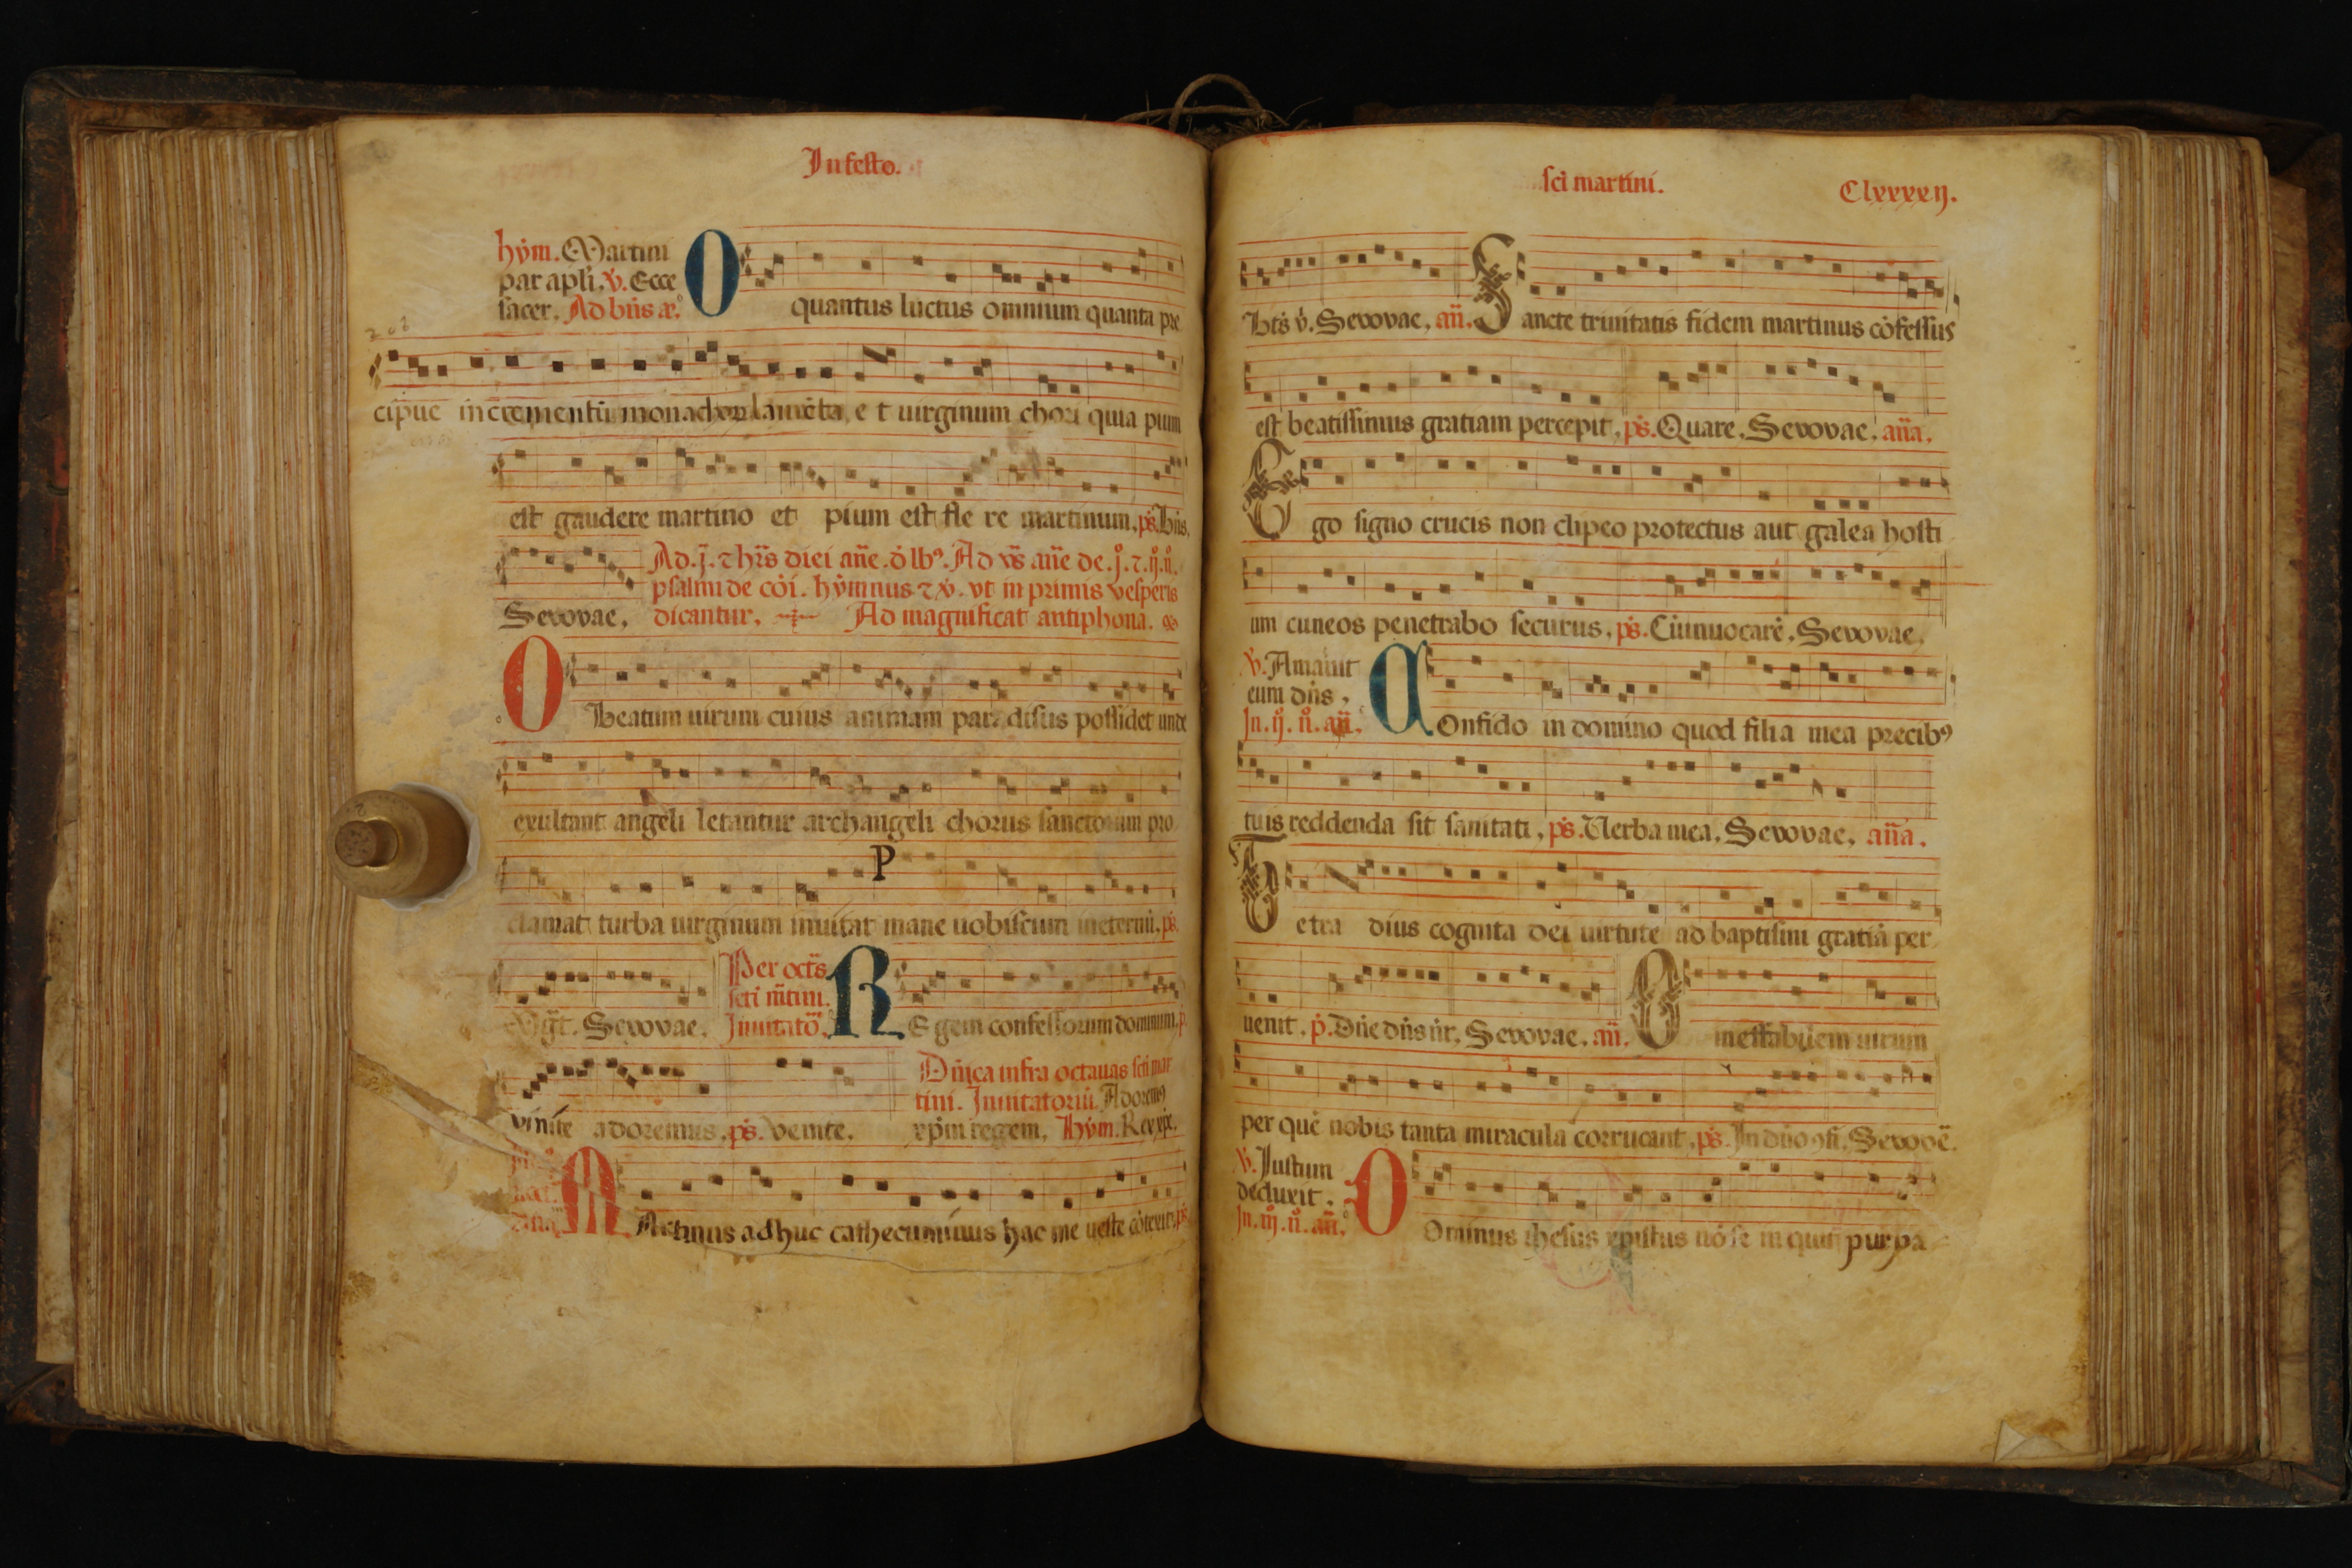 In festo.
hým. Martini
par apłi. ℣. Ecce
sacer. Ad bñs añ.
O quantus luctus omnium quanta pre
cipue incrementū monachorū lamēta e t uirginum chori quia pium
est gaudere martino et pium est fle re martinum. ps. Bñs.
Ad .j. ⁊ hr̃s diei añe. ð lbꝰ. Ad vs̃ añe de .j. ⁊ .ij. ñ.
psalmi de cōi. hýmnus ⁊ ℣. vt in primis vesperis
Seuouae. dicantur. Ad magnificat antiphona.
O Beatum uirum cuius animam paradisus possidet unde
exultant angeli letantur archangeli chorus sanctorum pro
clamat turba uirginum inuitat mane nobiscum ineternū. ps.
P
Mḡt. Seuouae.
Per oct̃s
sc̃i m̃tini.
Inuitatoꝛ̃.
RE gem confessorum dominum. p
Dñica infra octauas sc̃i mar
tini. Inuitatoriū. Adoremꝰ
vinite adoremus. ps. venite. xp̄m regem. Hým. Rex xp̄e.
MArtinus adhuc cathecuminus hac me ueste cōtexit. ps.
sc̃i martini. Clxxxxij.
Bt̃s v̇. Seuouae. añ. Sancte trinitatis fidem martinus cōfessus
est beatissimus gratiam percepit. ps. Quare. Seuouae. aña.
Ego signo crucis non clipeo protectus aut galea hosti
um cuneos penetrabo securus. ps. Cū inuocarē. Seuouae.
℣. Amauit
eum dñs.
In .ij. ñ. añ.
COnfido in domino quod filia mea precibꝰ
tuis reddenda sit sanitati. ps. Uerba mea. Seuouae. aña.
Tetra dius cognita dei uirtute ad baptismi gratiā per
uenit. p̄. Dñe dñs ñr. Seuouae. añ. O ineffabilem uirum
per quē nobis tanta miracula corruscant. ps. In dño ꝯfi. Seuouē.
℣. Iustum
deduxit.
In .iij. ñ. añ.
DOminus ihesus xpistus nō se in quit purpa